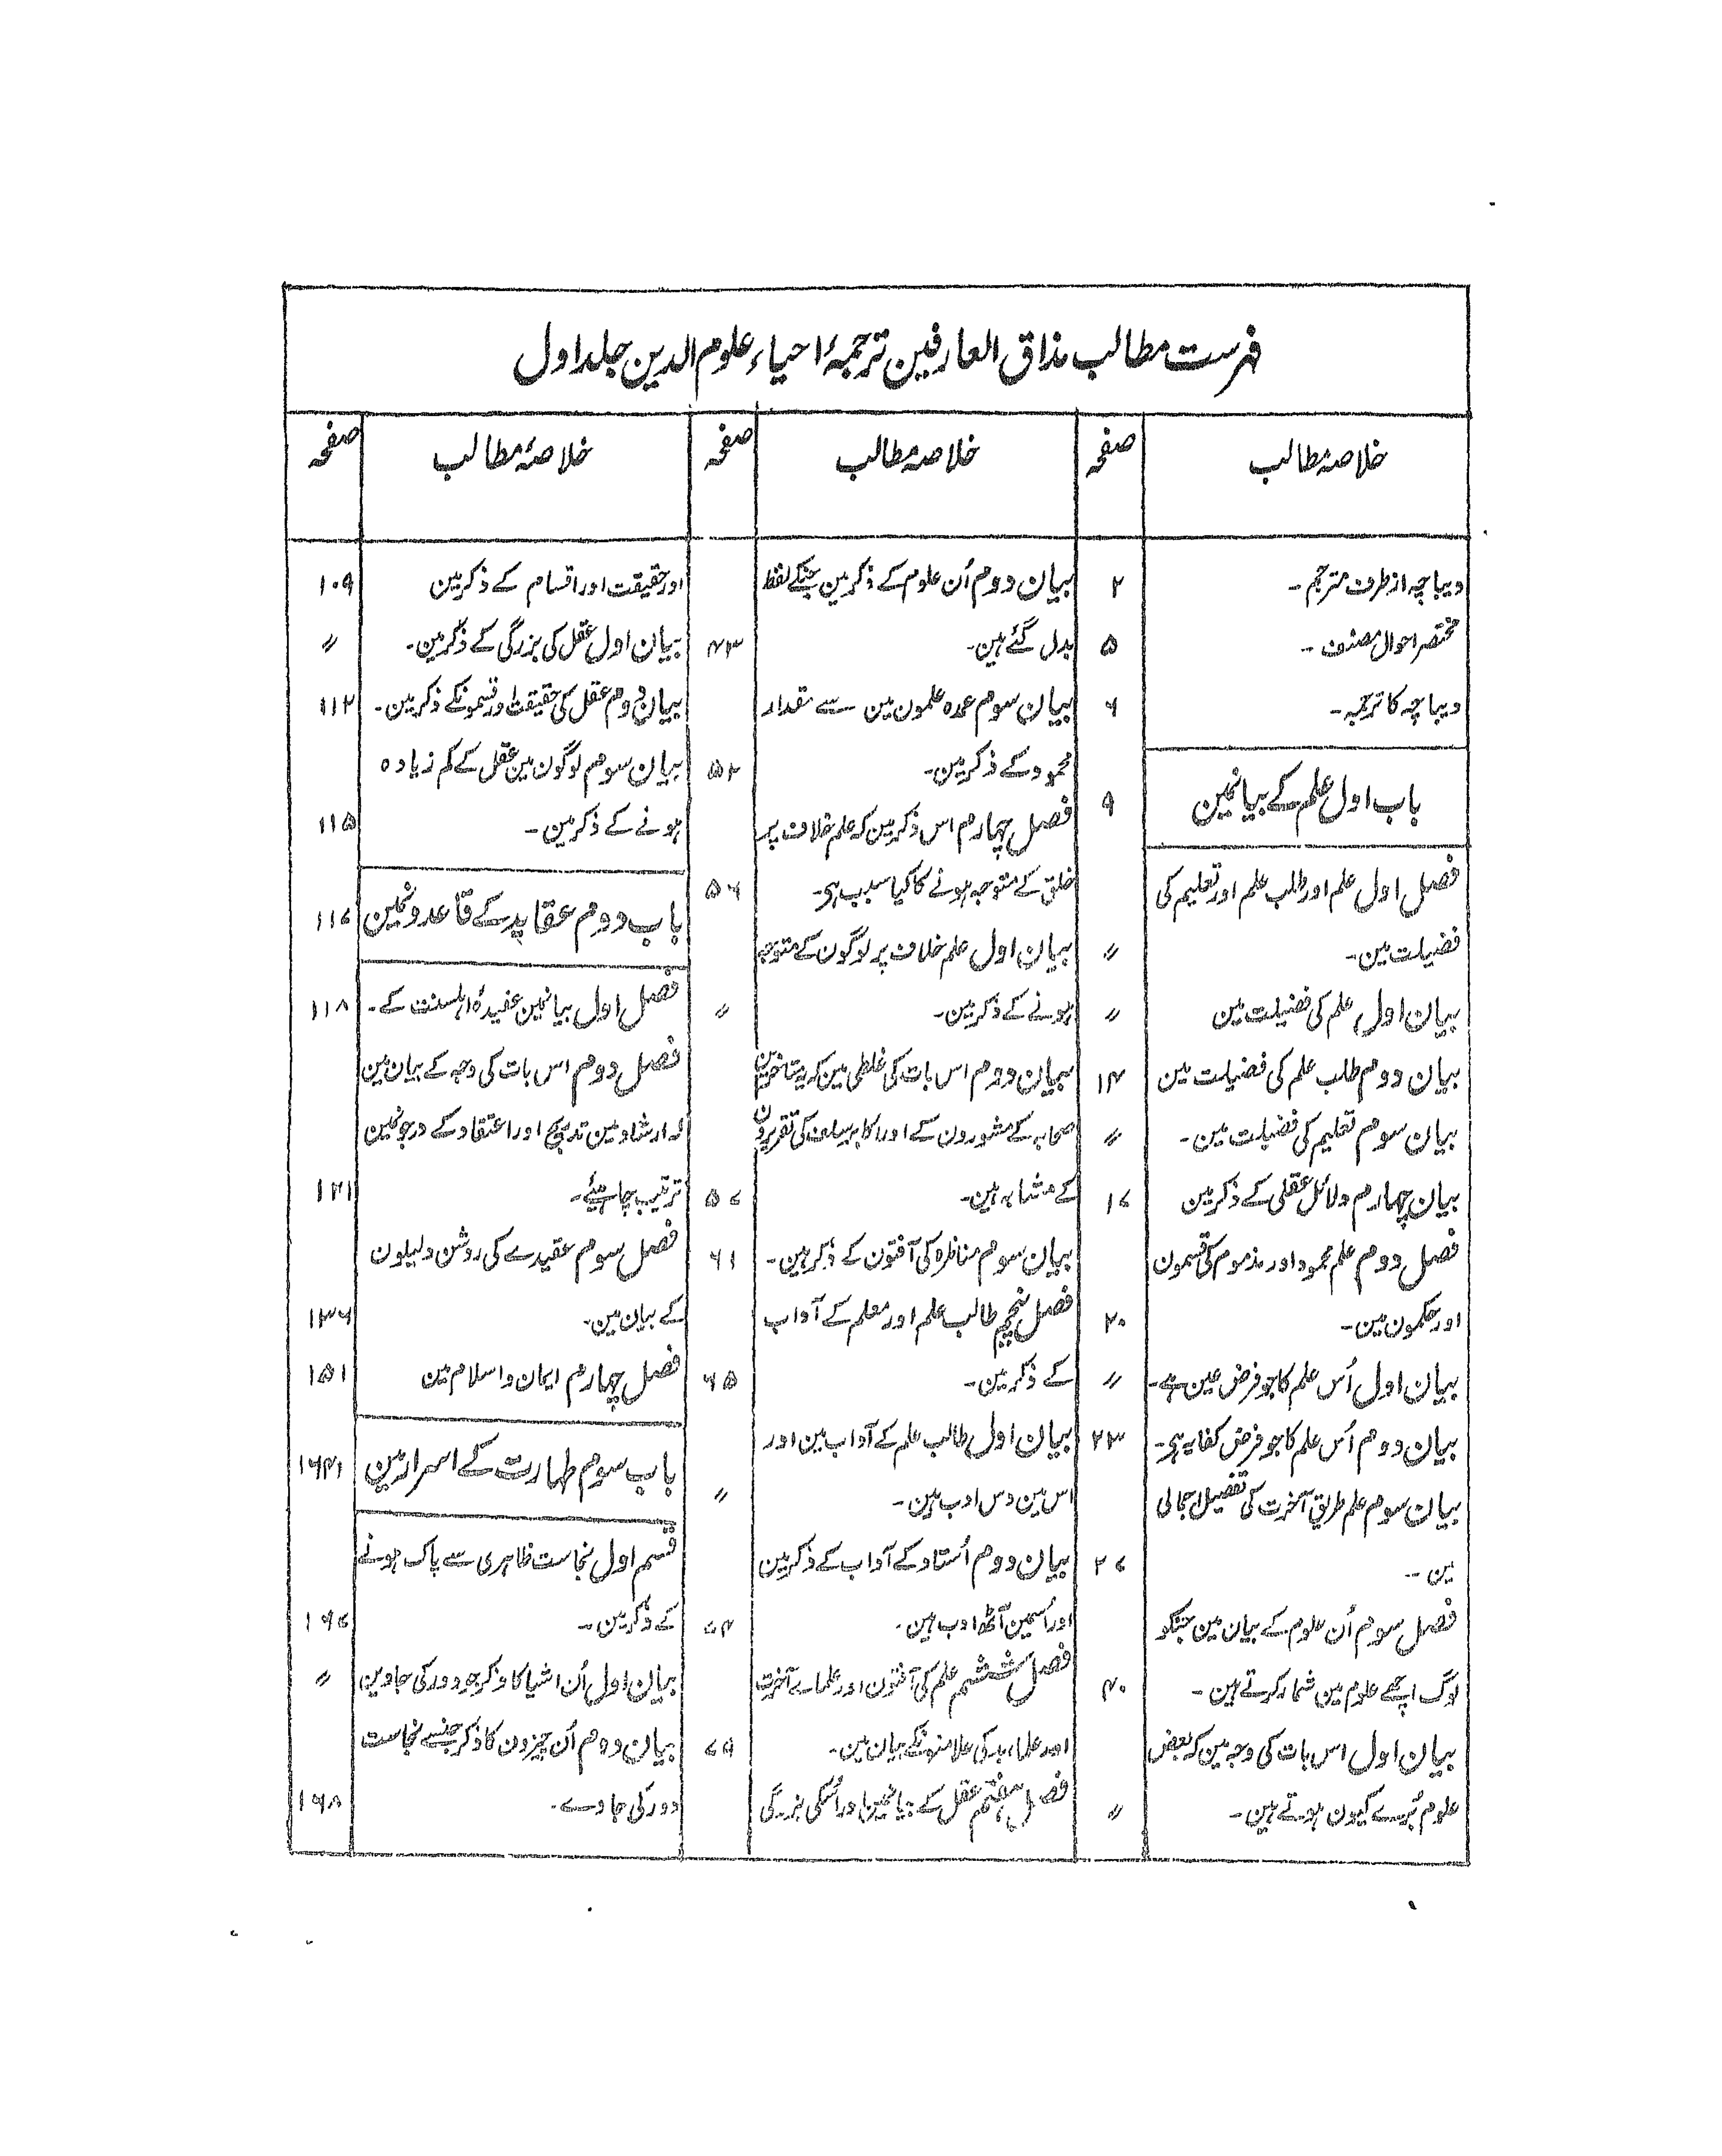 فہرست مطالب مذاق العارفین ترجمۂ احیاء علوم الدین جلد اول
خلاصۂ مطالب صفحہ
دیباچہ از طرف مترجم۔ ۲
مختصر احوال مصنف۔ ۵
دیباچہ کا ترجمہ۔ ۶
باب اول علم کے بیانمین ۹
فصل اول علم اور طلب علم اور تعلیم کی
فضیلت مین۔ ״
بیان اول علم کی فضیلت مین ״
بیان دوم طلب علم کی فضیلت مین ۱۴
بیان سوم تعلیم کی فضیلت مین۔ ״
بیان چہارم دلائل عقلی کے ذکر مین ۱۷
فصل دوم علم محمود اور مذموم کی قسمون
اور حکمون مین۔ ۲۰
بیان اول اُس علم کا جو فرض عین ہے۔ ״
بیان دوم اُس علم کا جو فرض کفایہ ہی۔ ۲۳
بیان سوم علم طریق آخرت کی تفصیل اجمالی
ین۔ ۲۷
فصل سوم اُن علوم کے بیان مین جنکو
لوگ اچھے علوم مین شمار کرتے ہین۔ ۴۰
بیان اول اس بات کی وجہ مین کہ بعض
علوم بُرے کیون ہوتے ہین۔ ״
خلاصہ مطالب صفحہ
بیان دوم اُن علوم کے ذکر مین جنکے لفظ
بدل گئے ہین۔ ۴۳
بیان سوم عمدہ علمون مین سے مقدار
محمود کے ذکر مین۔ ۵۲
فصل چہارم اس ذکر مین کہ علم خلاف پر
خلق کے متوجہ ہونے کا کیا سبب ہی۔ ۵۶
بیان اول علم خلاف پر لوگون کے متوجہ
ہونے کے ذکر مین۔ ״
بیان دوم اس بات کی غلطی مین کہ یہ مناظرین
صحابہ کے مشورون کے اور اکابر سلف کی تقریرون
کے مشابہ ہین۔ ۵۷
بیان سوم مناظرہ کی آفتون کے ذکر مین۔ ۶۱
فصل پنجم طالب علم اور معلم کے آداب
کے ذکر مین۔ ۶۵
بیان اول طالب علم کے آداب مین اور
اس مین دس ادب ہین۔ ״
بیان دوم اُستاد کے آداب کے ذکر مین
اور اُسمین آٹھ ادب ہین۔ ۷۴
فصل ششم علم کی آفتون اور علماے آخرت
اور علماء بد کی علامتونکے بیان مین۔ ۷۹
فصل ہفتم عقل کے بیانمین اور اُسکی بزرگی
خلاصۂ مطالب صفحہ
اور حقیقت اور اقسام کے ذکر مین ۱۰۹
بیان اول عقل کی بزرگی کے ذکر مین۔ ״
بیان دوم عقل کی حقیقت اور قسمونکے ذکر مین۔ ۱۱۲
بیان سوم لوگون مین عقل کے کم زیادہ
ہونے کے ذکر مین۔ ۱۱۵
باب دوم عقاید کے قاعدونمین ۱۱۷
فصل اول بیانمین عقیدۂ اہلسنت کے۔ ۱۱۸
فصل دوم اس بات کی وجہ کے بیان مین
کہ ارشاد مین تدریج اور اعتقاد کے درجونمین
ترتیب چاہیئے۔ ۱۲۱
فصل سوم عقیدے کی روشن دلیلون
کے بیان مین۔ ۱۳۶
فصل چہارم ایمان و اسلام مین ۱۵۱
باب سوم طہارت کے اسرار مین ۱۶۴
قسم اول نجاست ظاہری سے پاک ہونے
کے ذکر مین۔ ۱۶۷
بیان اول اُن اشیا کا ذکر جو دور کی جاوین ״
بیان دوم اُن چیزون کا ذکر جنسے نجاست
دور کی جاوے۔ ۱۶۸